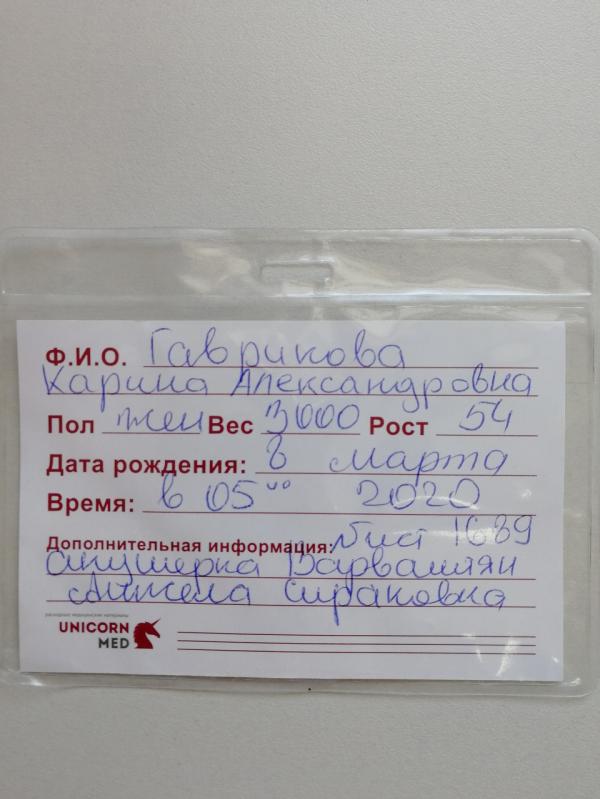 Ф.И.О. Гаврикова
Карина Александровна
Пол жен Вес 3000 Рост 54
Дата рождения: 8 марта
Время: в 05 00 2020
Дополнительная информация: Лист 1689
акушерка Варвашлян
Анжела Сираковна
расходные медицинские материалы
UNICORN
MED